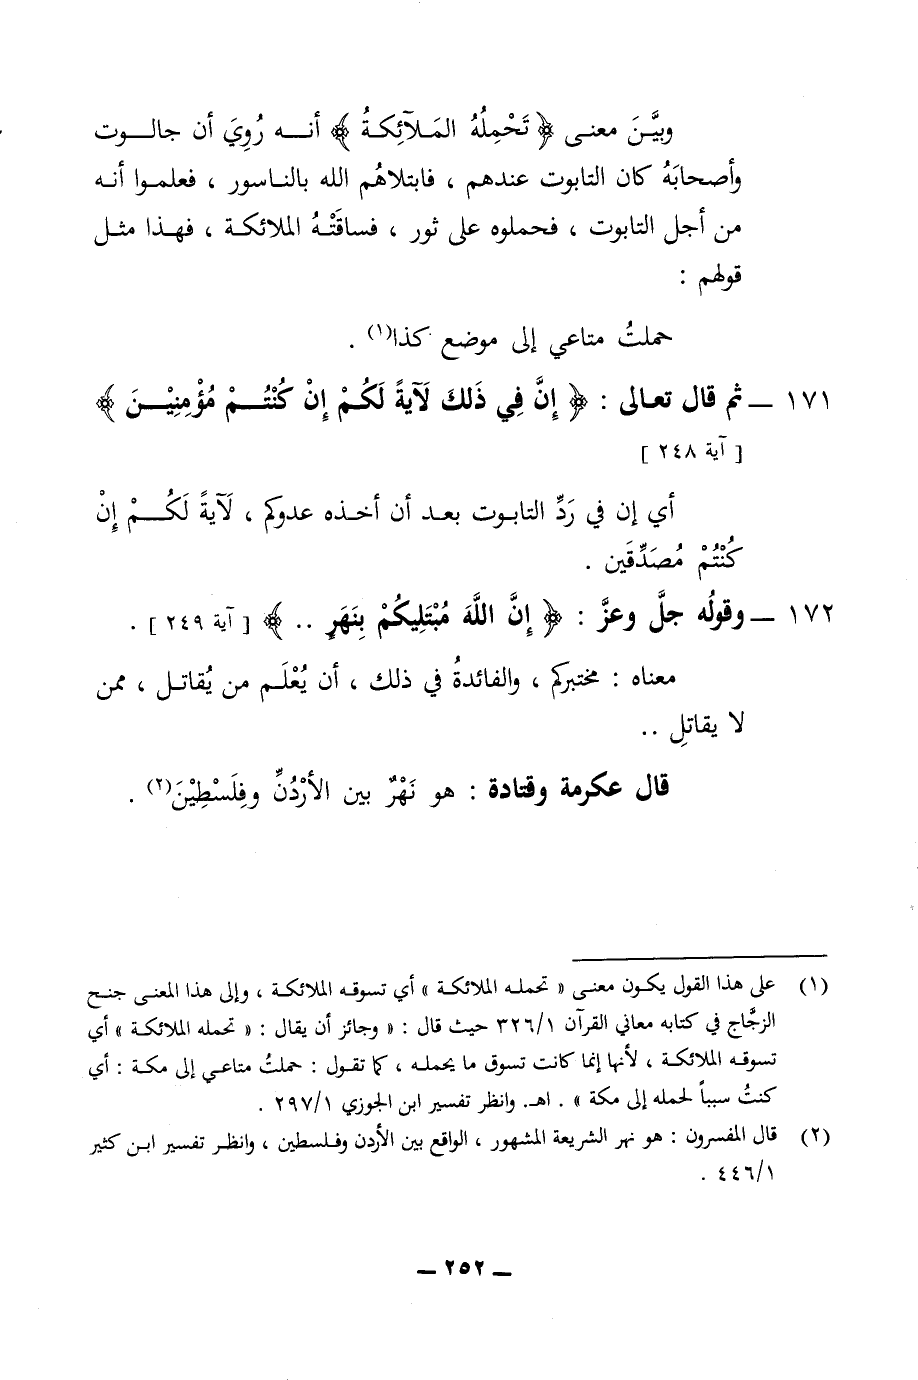 وبيَّنَ معنى ﴿ تَحْمِلُهُ المَلَآئِكَةُ ﴾ أنــه رُوِيَ أن جالــوت
وأصحابَهُ كان التابوت عندهم ، فابتلاهُم الله بالناسور ، فعلمـوا أنـه
من أجل التابوت ، فحملوه على ثور ، فساقَتْـهُ الملائكـة ، فهـذا مثـل
قولهم :
حملتُ متاعي إلى موضع كذا(١) .
١٧١ ــ ثم قال تعـالى : ﴿ إِنَّ فِي ذَلكَ لَآيَةً لَكُـمْ إِنْ كُنْتُــمْ مُؤْمِنِيْــنَ ﴾
[ آية ٢٤٨ ]
أي إن في رَدِّ التابـوت بعـد أن أخـذه عدوكم ، لَآيَةً لَكُـــمْ إِنْ
كُنْتُمْ مُصَدِّقَين .
١٧٢ ــ وقولُه جلَّ وعزَّ : ﴿ إِنَّ اللَّهَ مُبْتَلِيكُمْ بِنَهَرٍ .. ﴾ [ آية ٢٤٩ ] .
معناه : مختبركم ، والفائدةُ في ذلك ، أن يُعْلَـم من يُقاتـل ، ممن
لا يقاتلِ ..
قال عكرمة وقتادة : هو نَهْرٌ بين الأرْدُنِّ وفِلَسْطِيْنَ(٢) .
(١) على هذا القول يكـون معنـى « تحملـه الملائكـة » أي تسوقـه الملائكـة ، وإلى هـذا المعنـى جنـح
الزجَّاج في كتابه معاني القرآن ٣٢٦/١ حيث قال : « وجائز أن يقال : « تحمله الملائكة » أي
تسوقه الملائكة ، لأنها إنما كانت تسوق ما يحملـه ، كما تقول : حملتُ متاعـي إلى مكـة : أي
كنتُ سبباً لحمله إلى مكة » . اهـ. وانظر تفسير ابن الجوزي ٢٩٧/١ .
(٢) قال المفسرون : هو نهر الشريعة المشهور ، الواقع بين الأردن وفـلسطين ، وانظـر تفسير ابـن كثير
٤٤٦/١ .
ــ ٢٥٢ ــ